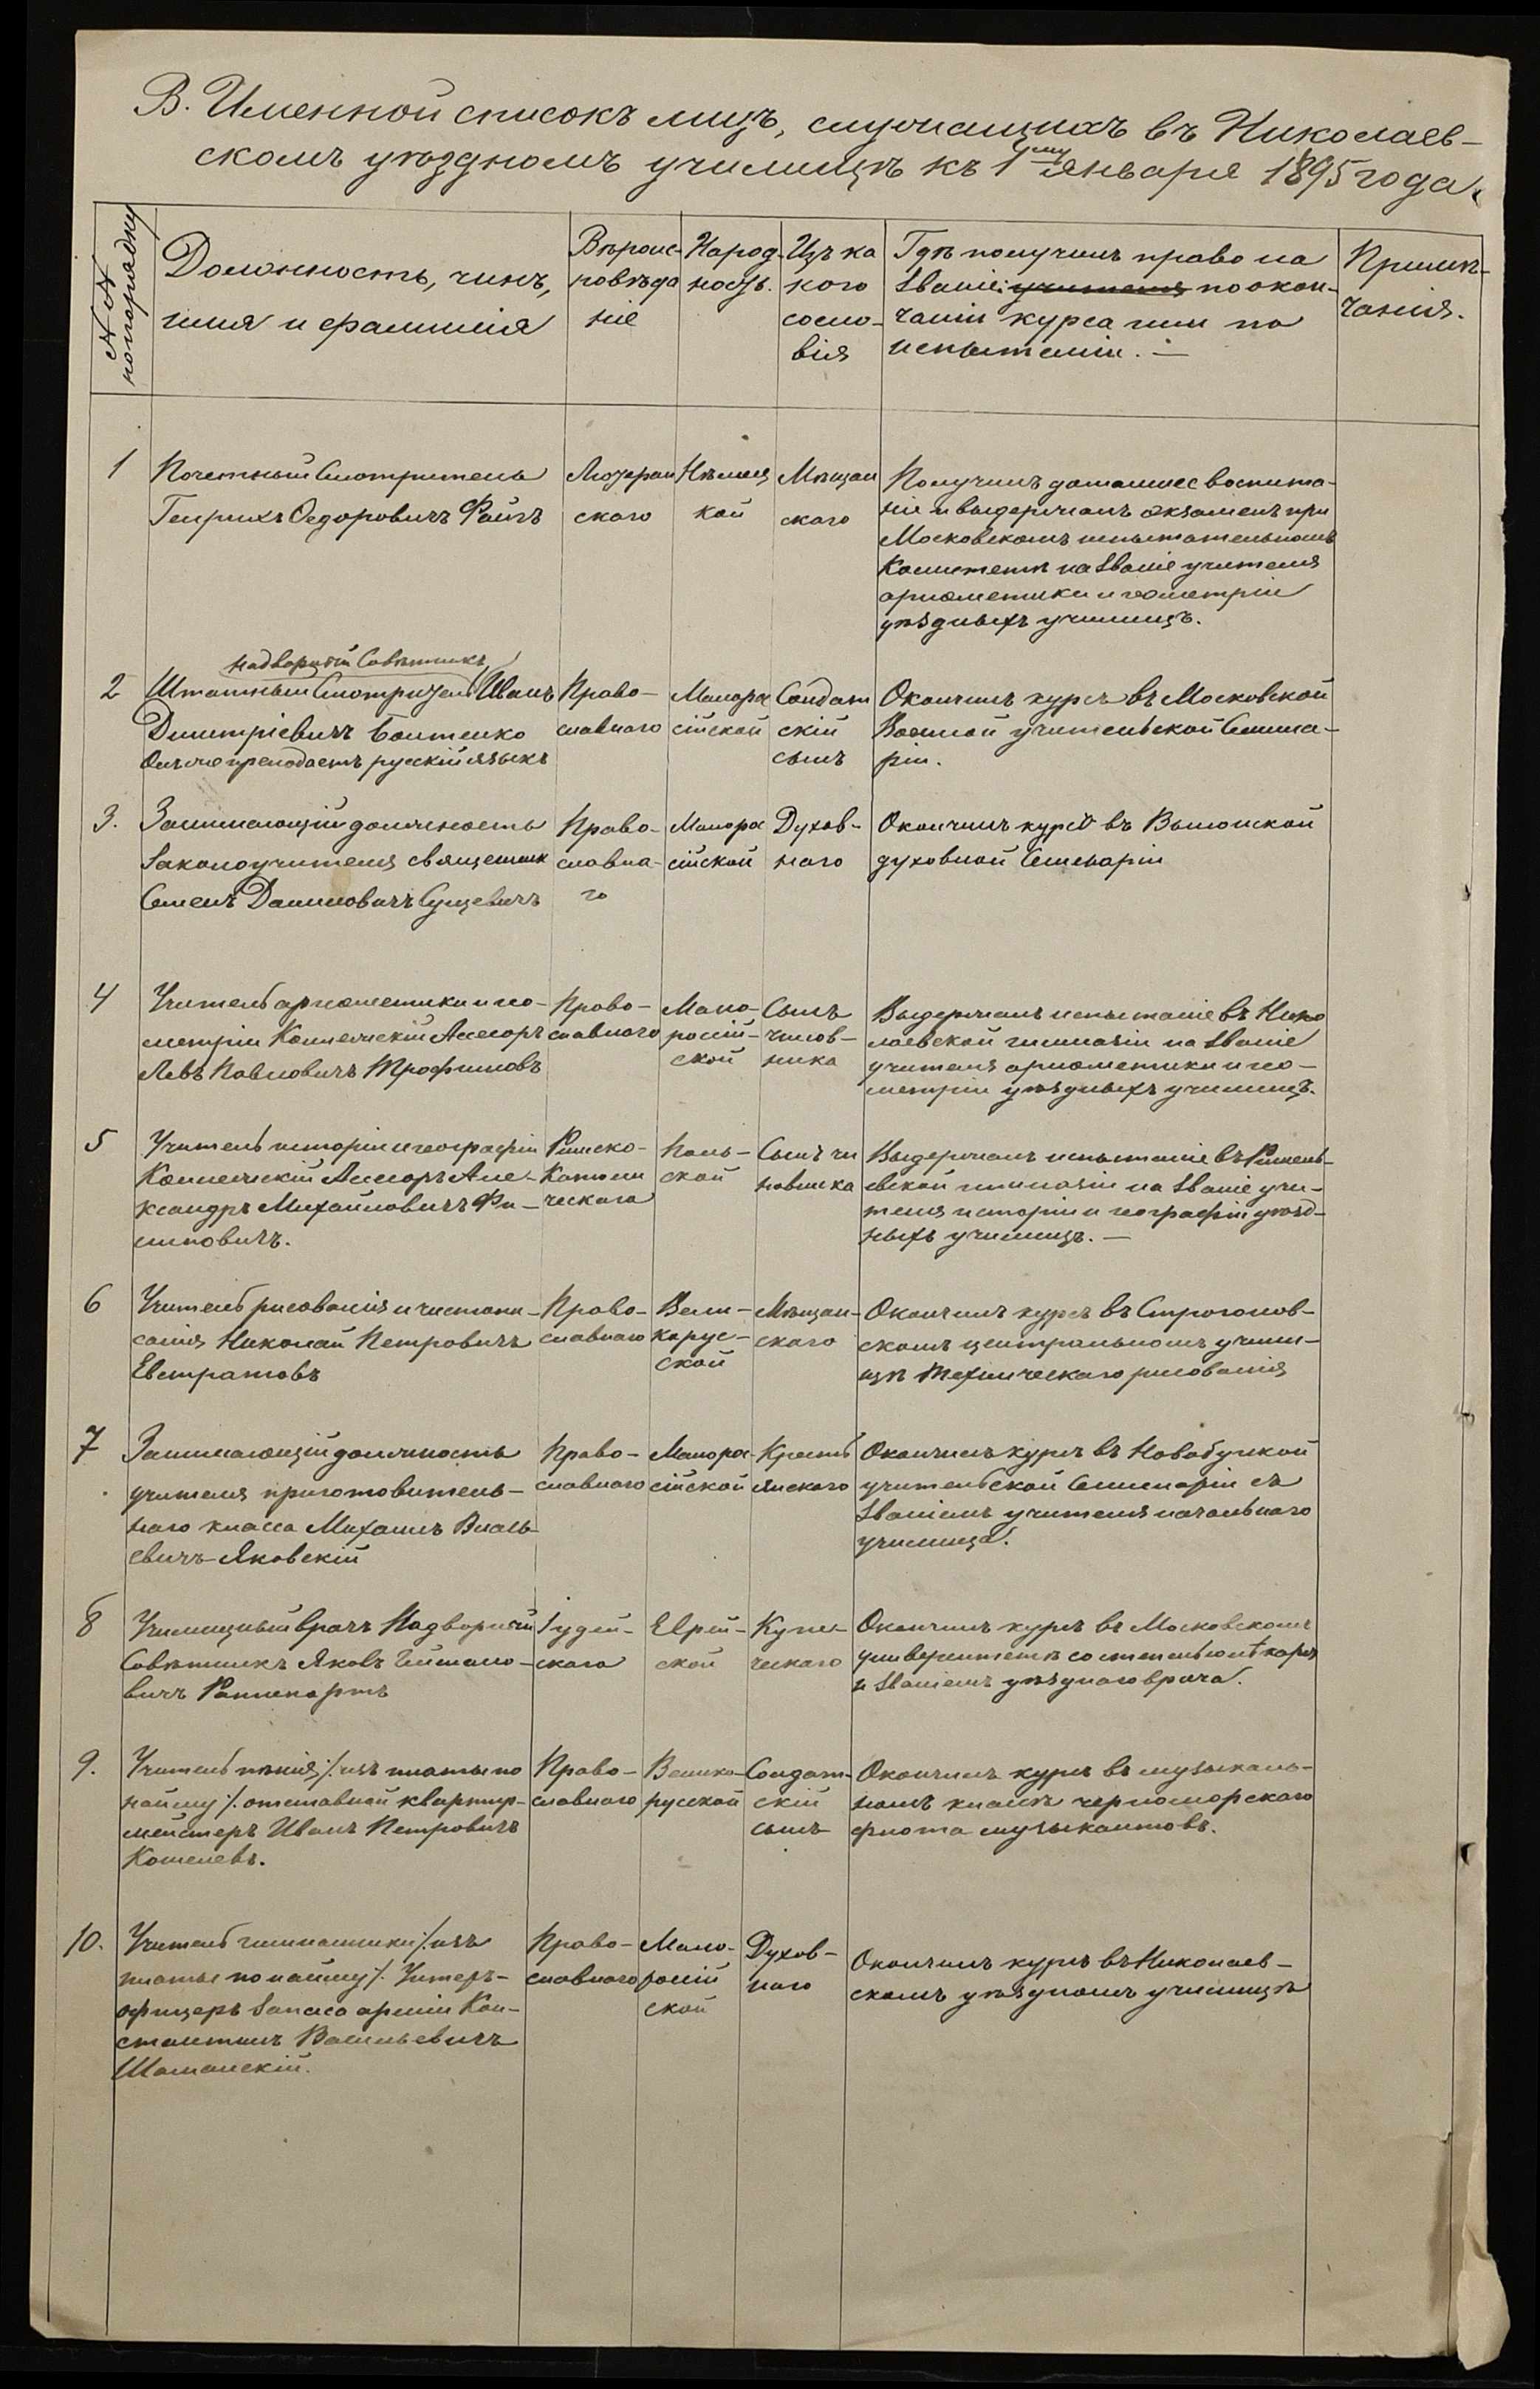 В. Именной списокъ лицъ, служащихъ въ Николаев-
скомъ уѣздномъ училищѣ къ 1му января 1895 года.
№№ по порядку
Должность, чинъ,
имя и фамилія
Вѣроис-
повѣда
ніе
Народ-
ность.
Изъ ка
кого
сосло-
вія
Гдѣ получилъ право на
званіе учителя по окон-
чаніи курса или по
испытаніи. —
Примѣ-
чанія.
1
Почетный Смотритель
Генрихъ Ѳедоровичъ Файгъ
Лютеран
скаго
Нѣмец
кой
Мѣщан
скаго
Получилъ домашнее воспита-
ніе и выдержалъ экзаменъ при
Московскомъ испытательномъ
Комитетѣ на званіе учителя
ариѳметики и геометріи
уѣздныхъ училищъ.
2
надворный Совѣтникъ
Штатный Смотритель Иванъ
Дмитріевичъ Болтенко
Онъ же преподаетъ русскій языкъ
Право-
славнаго
Малоро
сійской
Солдат
скій
сынъ
Окончилъ курсъ въ Московской
Военной учительской Семина-
ріи.
3.
Занимающій должность
Законоучителя священник
Семенъ Даниловичъ
Право-
славна-
го
Малоро
сійской
Духов-
наго
Окончилъ курсъ въ
духовной Семинаріи
4
Учитель ариѳметики и гео-
метріи Коллежскій Асесоръ
Левъ Павловичъ Трофимовъ
Право-
славнаго
Мало-
россій-
ской
Сынъ
чинов-
ника
Выдержалъ испытаніе въ Нико
лаевской гимназіи на званіе
учителя ариѳметики и гео-
метріи уѣздныхъ училищъ.
5
Учитель исторіи и географіи
Коллежскій Асесоръ Але-
ксандръ Михайловичъ Фи-
липовичъ.
Римско-
Католи
ческаго
Поль-
ской
Сынъ чи
новника
Выдержалъ испытаніе въ Ришель-
евской гимназіи на званіе учи-
теля исторіи и географіи уѣзд-
ныхъ училищъ. —
6
Учитель рисованія и чистопи-
санія Николай Петровичъ
Евстратовъ
Право-
славнаго
Вели-
корус-
ской
Мѣщан-
скаго
Окончилъ курсъ въ Строгонов-
скомъ центральномъ учили-
щѣ техническаго рисованія
7
Занимающій должность
учителя приготовитель-
наго класса Михаилъ Власъ-
евичъ Яковскій
Право-
славнаго
Малоро-
сійской
Кресть
янскаго
Окончилъ курсъ въ Новобугской
учительской Семинаріи съ
званіемъ учителя начальнаго
училища.
8
Училищный врачъ Надворный
Совѣтникъ Яковъ
вичъ Раппопортъ
Іудей-
скаго
Еврей-
ской
Купе-
ческаго
Окончилъ курсъ въ Московскомъ
университетѣ со степенью лѣкаря
и званіемъ уѣзднаго врача.
9.
Учитель пѣнія /: изъ платы по
найму :/ отставной квартир-
мейстеръ Иванъ Петровичъ
Кошелевъ.
Право-
славнаго
Велико-
русской
Солдат-
скій
сынъ
Окончилъ курсъ въ музыкаль-
номъ классѣ черноморскаго
флота музыкантовъ.
10.
Учитель гимнастики /: изъ
платы по найму :/ Унтеръ-
офицеръ запаса арміи Кон-
стантинъ Васильевичъ
Шаманскій.
Право-
славнаго
Мало-
россій
ской
Духов-
наго
Окончилъ курсъ въ Николаев-
скомъ уѣздномъ училищѣ